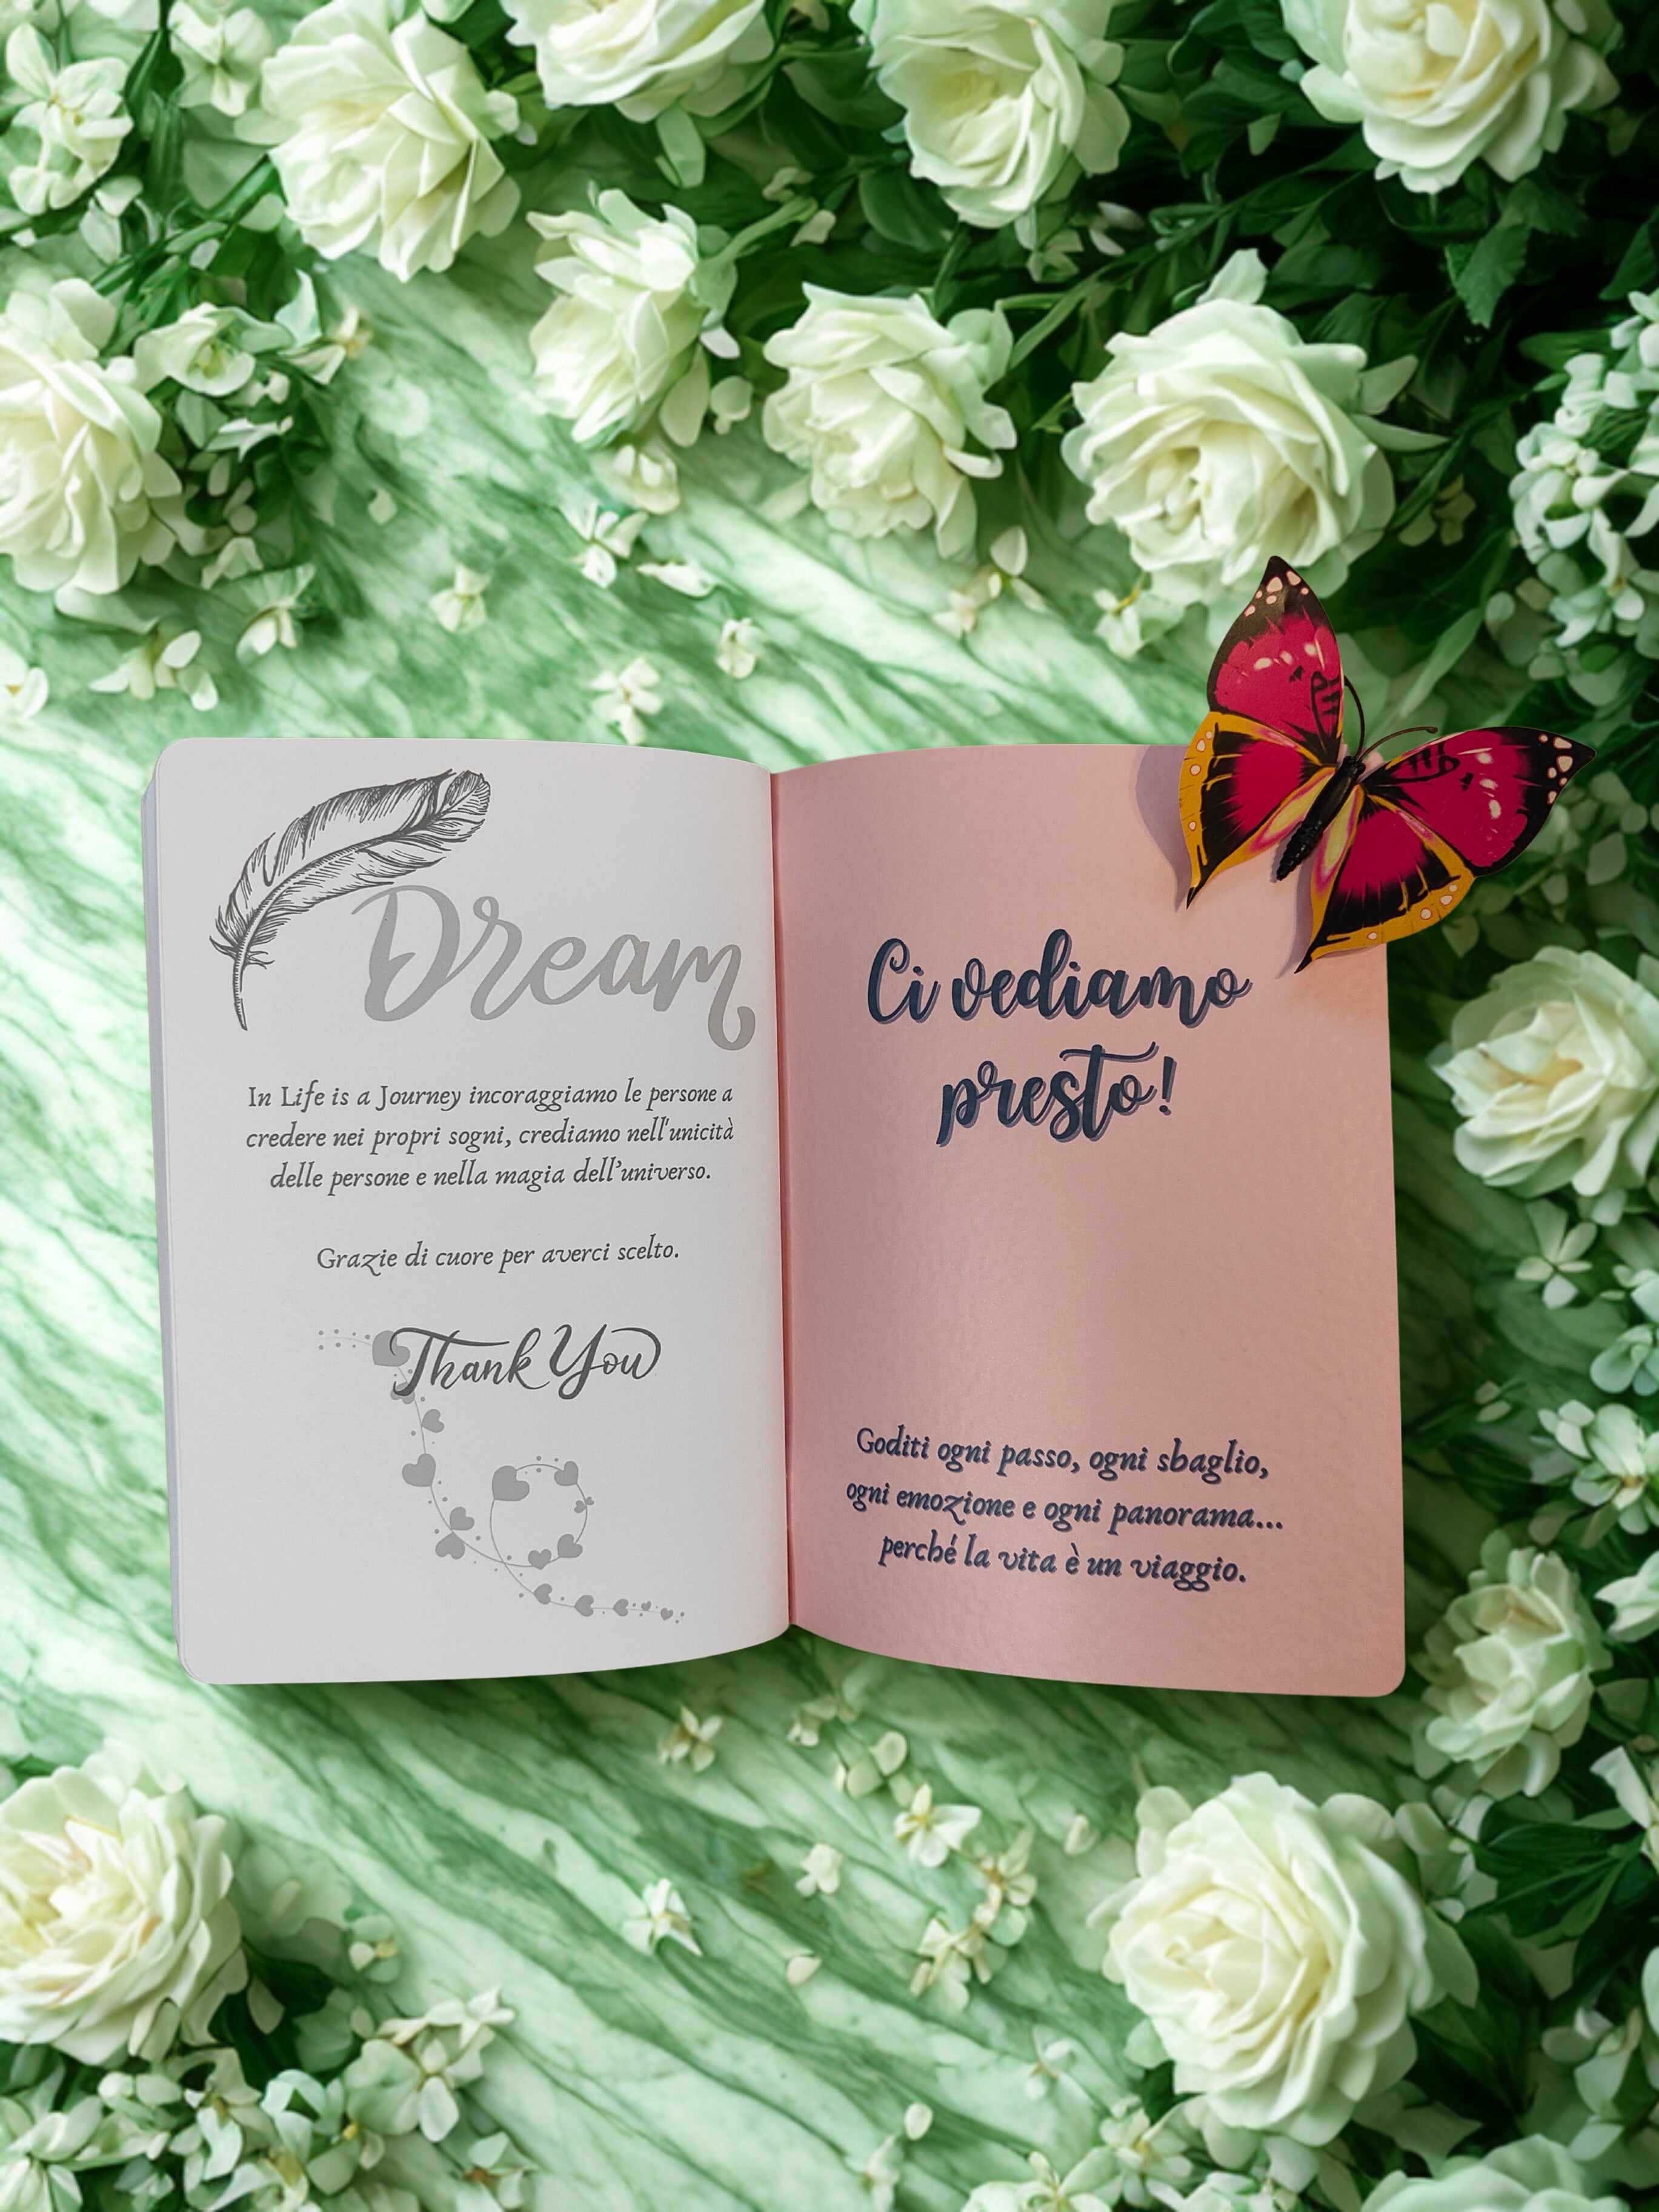 Dream
In Life is a Journey incoraggiamo le persone a
credere nei propri sogni, crediamo nell'unicità
delle persone e nella magia dell'universo.
Grazie di cuore per averci scelto.
Thank You
Ci vediamo
presto!
Goditi ogni passo, ogni sbaglio,
ogni emozione e ogni panorama...
perché la vita è un viaggio.